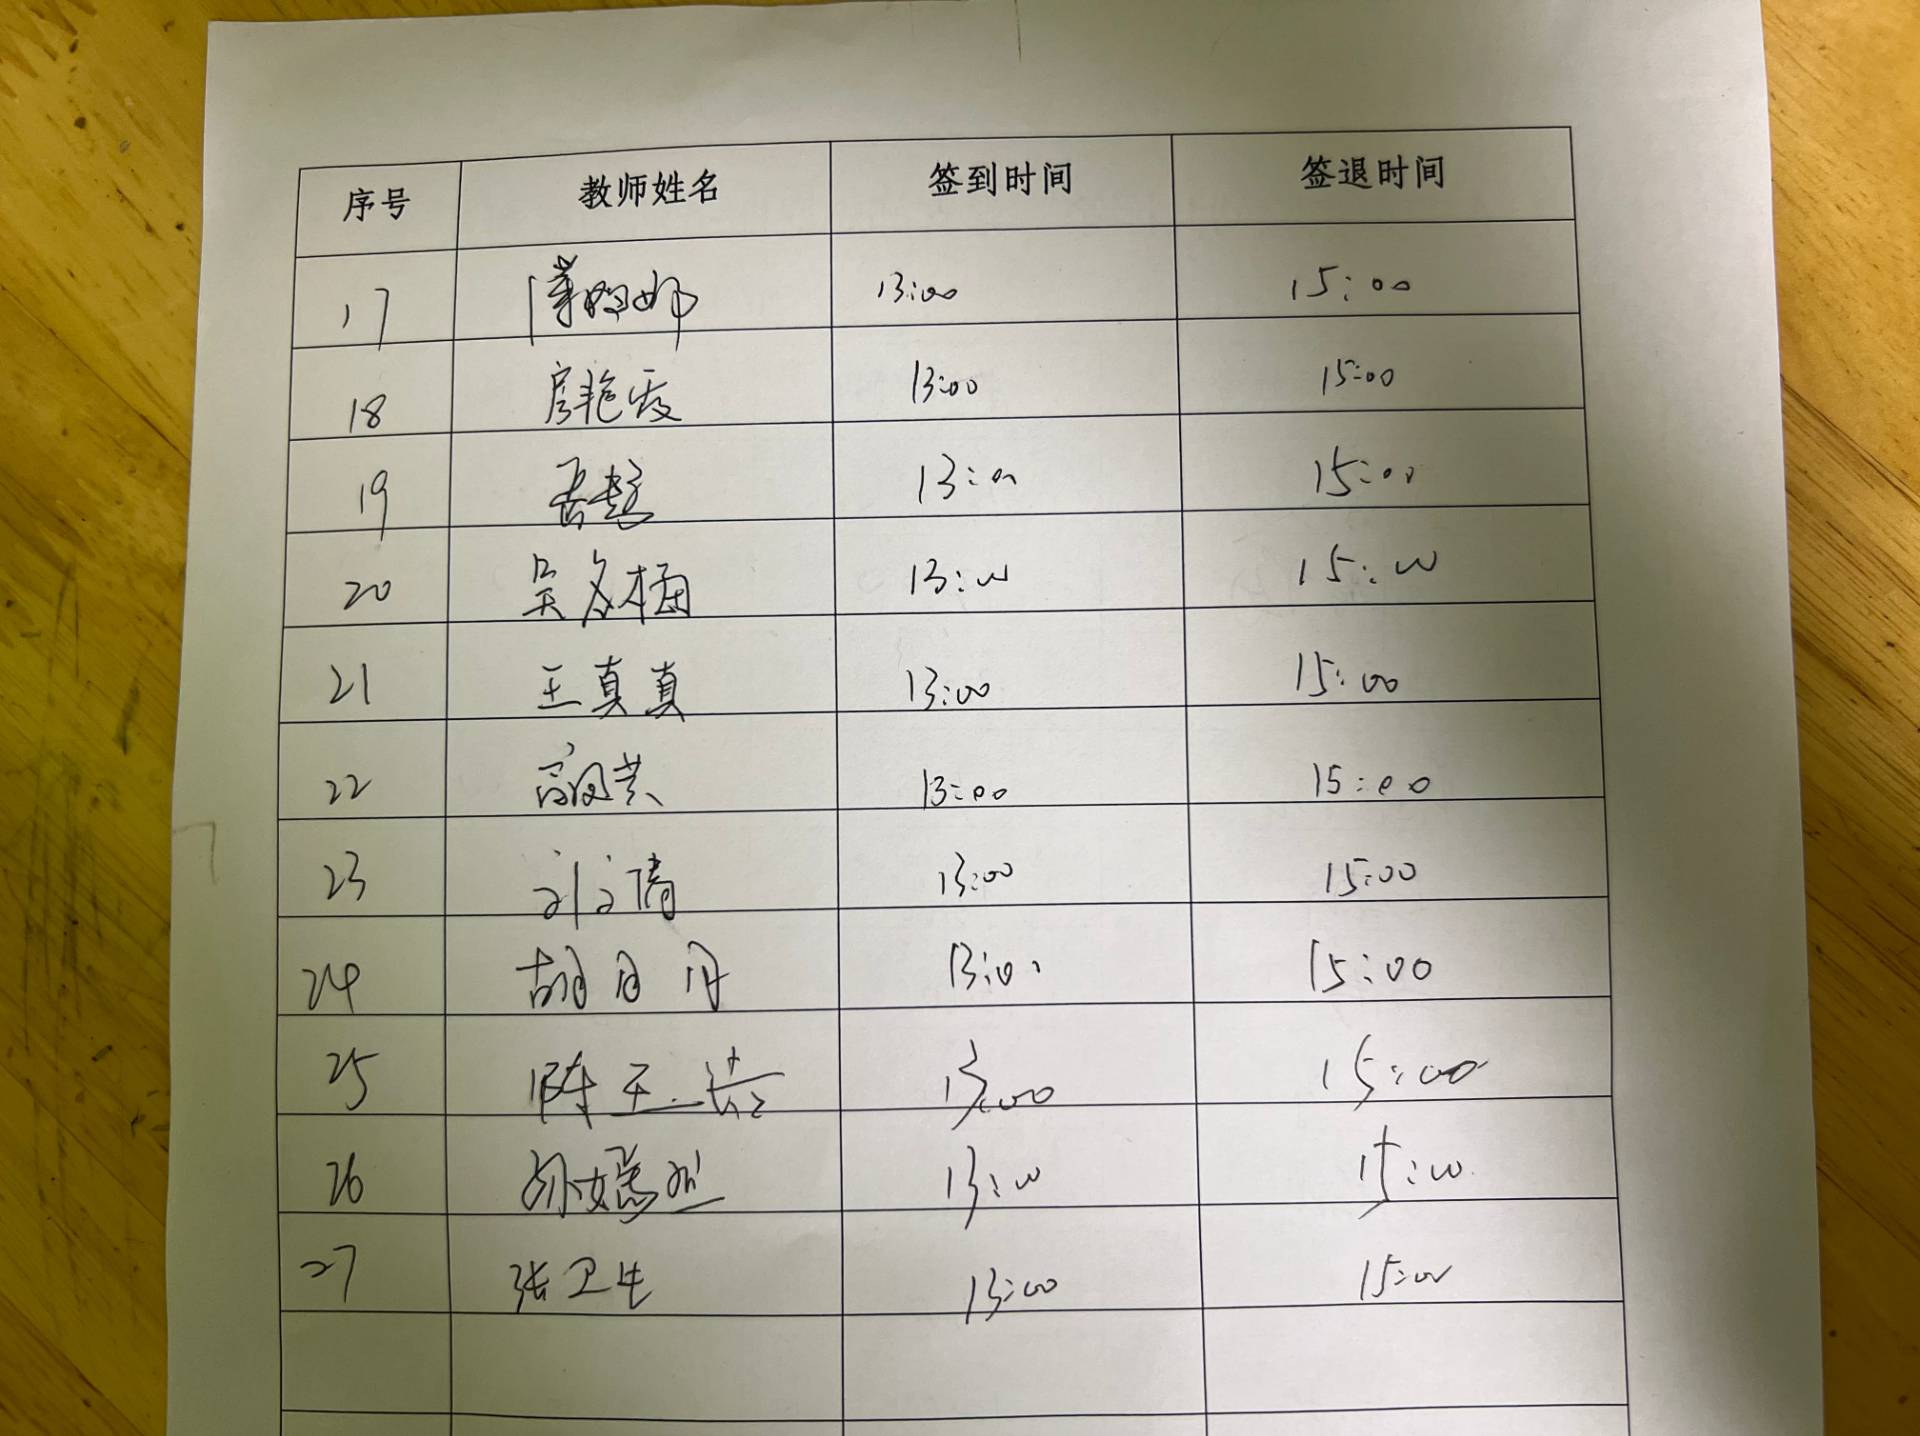 序号 教师姓名 签到时间 签退时间
17 13:00 15:00
18 房艳霞 13:00 15:00
19 13:00 15:00
20 吴冬梅 13:00 15:00
21 王真真 13:00 15:00
22 13:00 15:00
23 刘清 13:00 15:00
24 胡月丹 13:00 15:00
25 陈玉 13:00 15:00
26 孙嫣然 13:00 15:00
27 张卫生 13:00 15:00